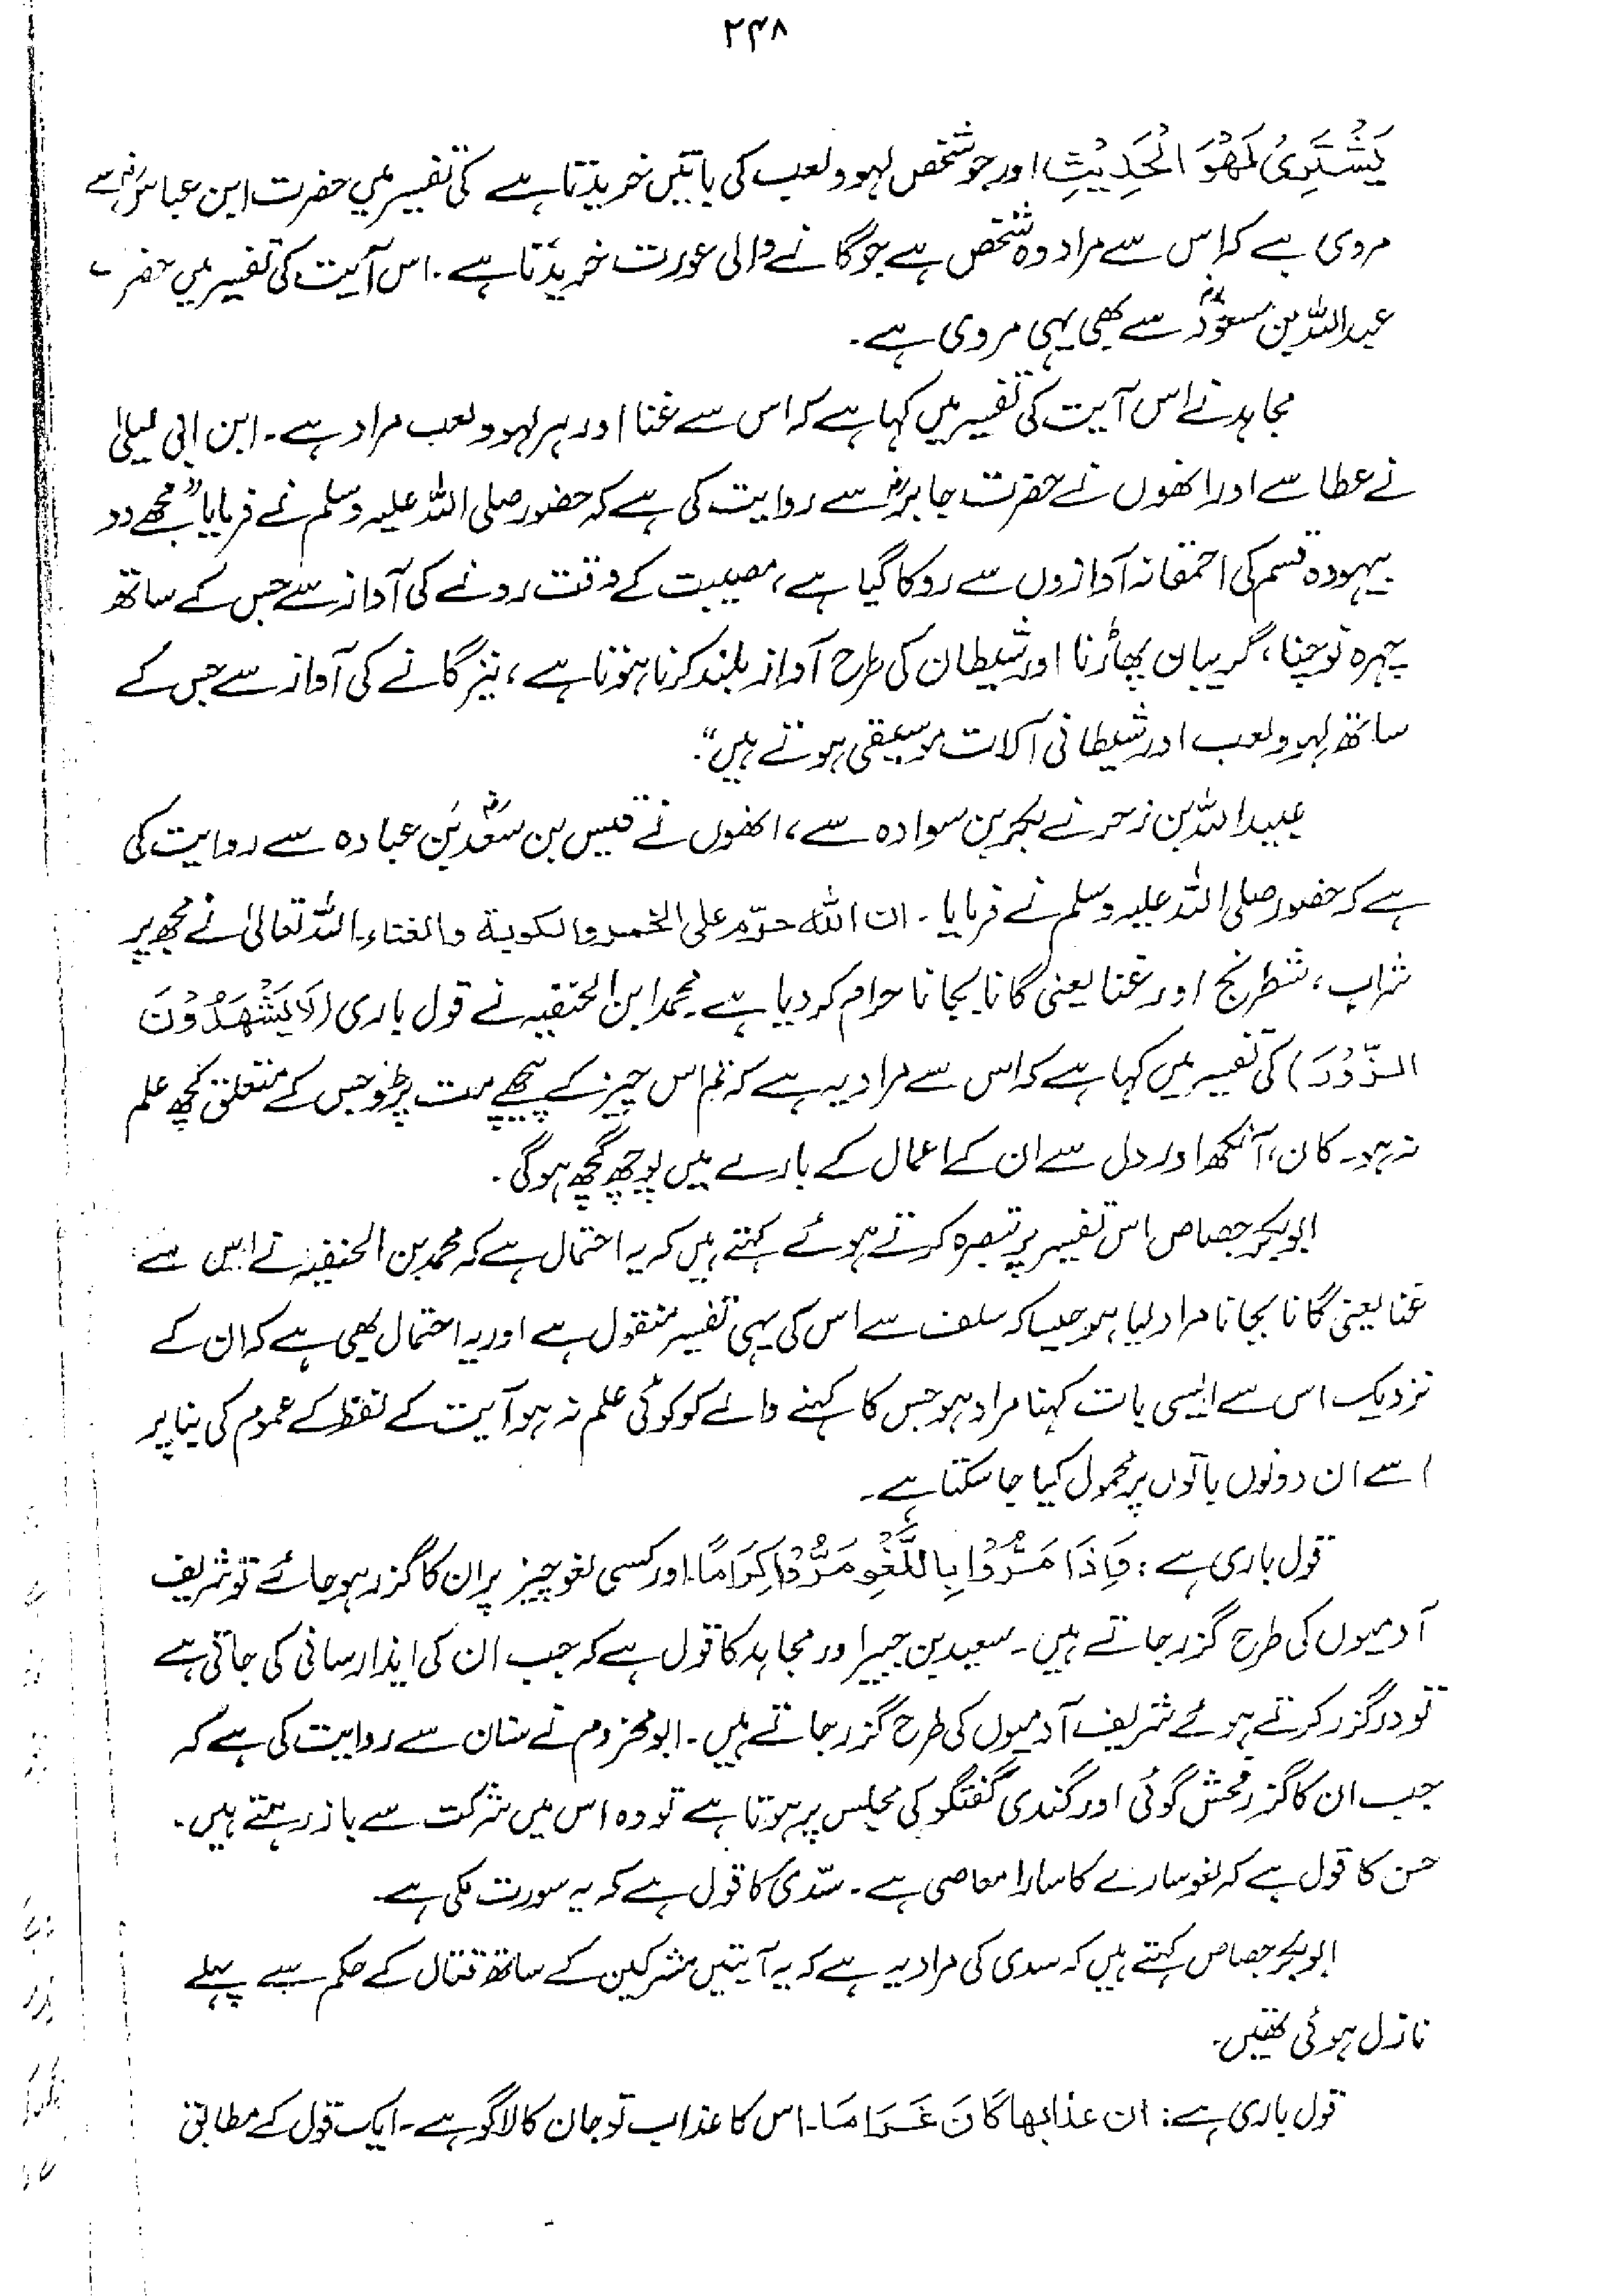 ۲۴۸
یَشْتَرِیْ لَهْوَ الْحَدِیْثِ اور جو شخص لہو و لعب کی باتیں خریدتا ہے کی تفسیر میں حضرت ابن عباسؓ سے
مروی ہے کہ اس سے مراد وہ شخص ہے جو گانے والی عورت خریدتا ہے۔ اس آیت کی تفسیر میں حضرت
عبداللہ بن مسعودؓ سے بھی یہی مروی ہے۔
مجاہد نے اس آیت کی تفسیر میں کہا ہے کہ اس سے غنا اور ہر لہو و لعب مراد ہے۔ ابن ابی لیلیٰ
نے عطا سے اور انھوں نے حضرت جابرؓ سے روایت کی ہے کہ حضور صلی اللہ علیہ وسلم نے فرمایا "مجھے دو
بیہودہ قسم کی احمقانہ آوازوں سے روکا گیا ہے، مصیبت کے وقت رونے کی آواز سے جس کے ساتھ
چہرہ نوچنا، گریبان پھاڑنا اور شیطان کی طرح آواز بلند کرنا ہوتا ہے، نیز گانے کی آواز سے جس کے
ساتھ لہو و لعب اور شیطانی آلات موسیقی ہوتے ہیں"۔
عبیداللہ بن زحر نے بکر بن سوادہ سے، انھوں نے قیس بن سعدؓ بن عبادہ سے روایت کی
ہے کہ حضور صلی اللہ علیہ وسلم نے فرمایا۔ ان اللہ حرّم علی الخمر والکوبة والغناء۔ اللہ تعالیٰ نے مجھ پر
شراب، شطرنج اور غنا یعنی گانا بجانا حرام کر دیا ہے۔ محمد ابن الحنفیہ نے قول باری (لَا یَشْهَدُوْنَ
الزُّوْرَ) کی تفسیر میں کہا ہے کہ اس سے مراد یہ ہے کہ تم اس چیز کے پیچھے مت پڑو جس کے متعلق کچھ علم
نہ ہو۔ کان، آنکھ اور دل سے ان کے اعمال کے بارے میں پوچھ گچھ ہوگی۔
ابو بکر جصاص اس تفسیر پر تبصرہ کرتے ہوئے کہتے ہیں کہ یہ احتمال ہے کہ محمد بن الحنفیہ نے اس سے
غنا یعنی گانا بجانا مراد لیا ہو جیسا کہ سلف سے اس کی یہی تفسیر منقول ہے اور یہ احتمال بھی ہے کہ ان کے
نزدیک اس سے ایسی بات کہنا مراد ہو جس کا کہنے والے کو کوئی علم نہ ہو آیت کے لفظ کے عموم کی بنا پر
اسے ان دونوں باتوں پر محمول کیا جا سکتا ہے۔
قول باری ہے: وَاِذَا مَرُّوْا بِاللَّغْوِ مَرُّوْا كِرَامًا۔ اور کسی لغو چیز پر ان کا گزر ہو جائے تو شریف
آدمیوں کی طرح گزر جاتے ہیں۔ سعید بن جبیر اور مجاہد کا قول ہے کہ جب ان کی ایذا رسانی کی جاتی ہے
تو درگزر کرتے ہوئے شریف آدمیوں کی طرح گزر جاتے ہیں۔ ابو مخزوم نے سنان سے روایت کی ہے کہ
جب ان کا گزر فحش گوئی اور گندی گفتگو کی مجلس پر ہوتا ہے تو وہ اس میں شرکت سے باز رہتے ہیں۔
حسن کا قول ہے کہ لغو سارے کا سارا معاصی ہے۔ سدّی کا قول ہے کہ یہ سورت مکی ہے۔
ابو بکر جصاص کہتے ہیں کہ سدی کی مراد یہ ہے کہ یہ آیتیں مشرکین کے ساتھ قتال کے حکم سے پہلے
نازل ہوئی تھیں۔
قول باری ہے: ان عذابها كَانَ غَرَامًا۔ اس کا عذاب تو جان کا لاگو ہے۔ ایک قول کے مطابق